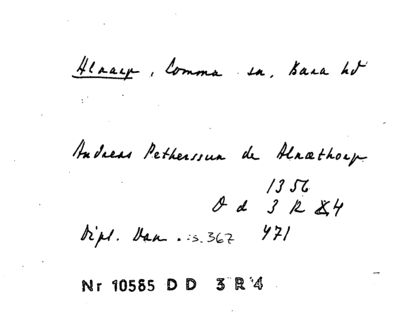 Alnarp, Lomma sn, Bara hd
Andreas Petherssun de Alnæthorp
1356
O d 3 R 4
Dipl. Dan. s. 367 471
Nr 10585 D D 3 R 4